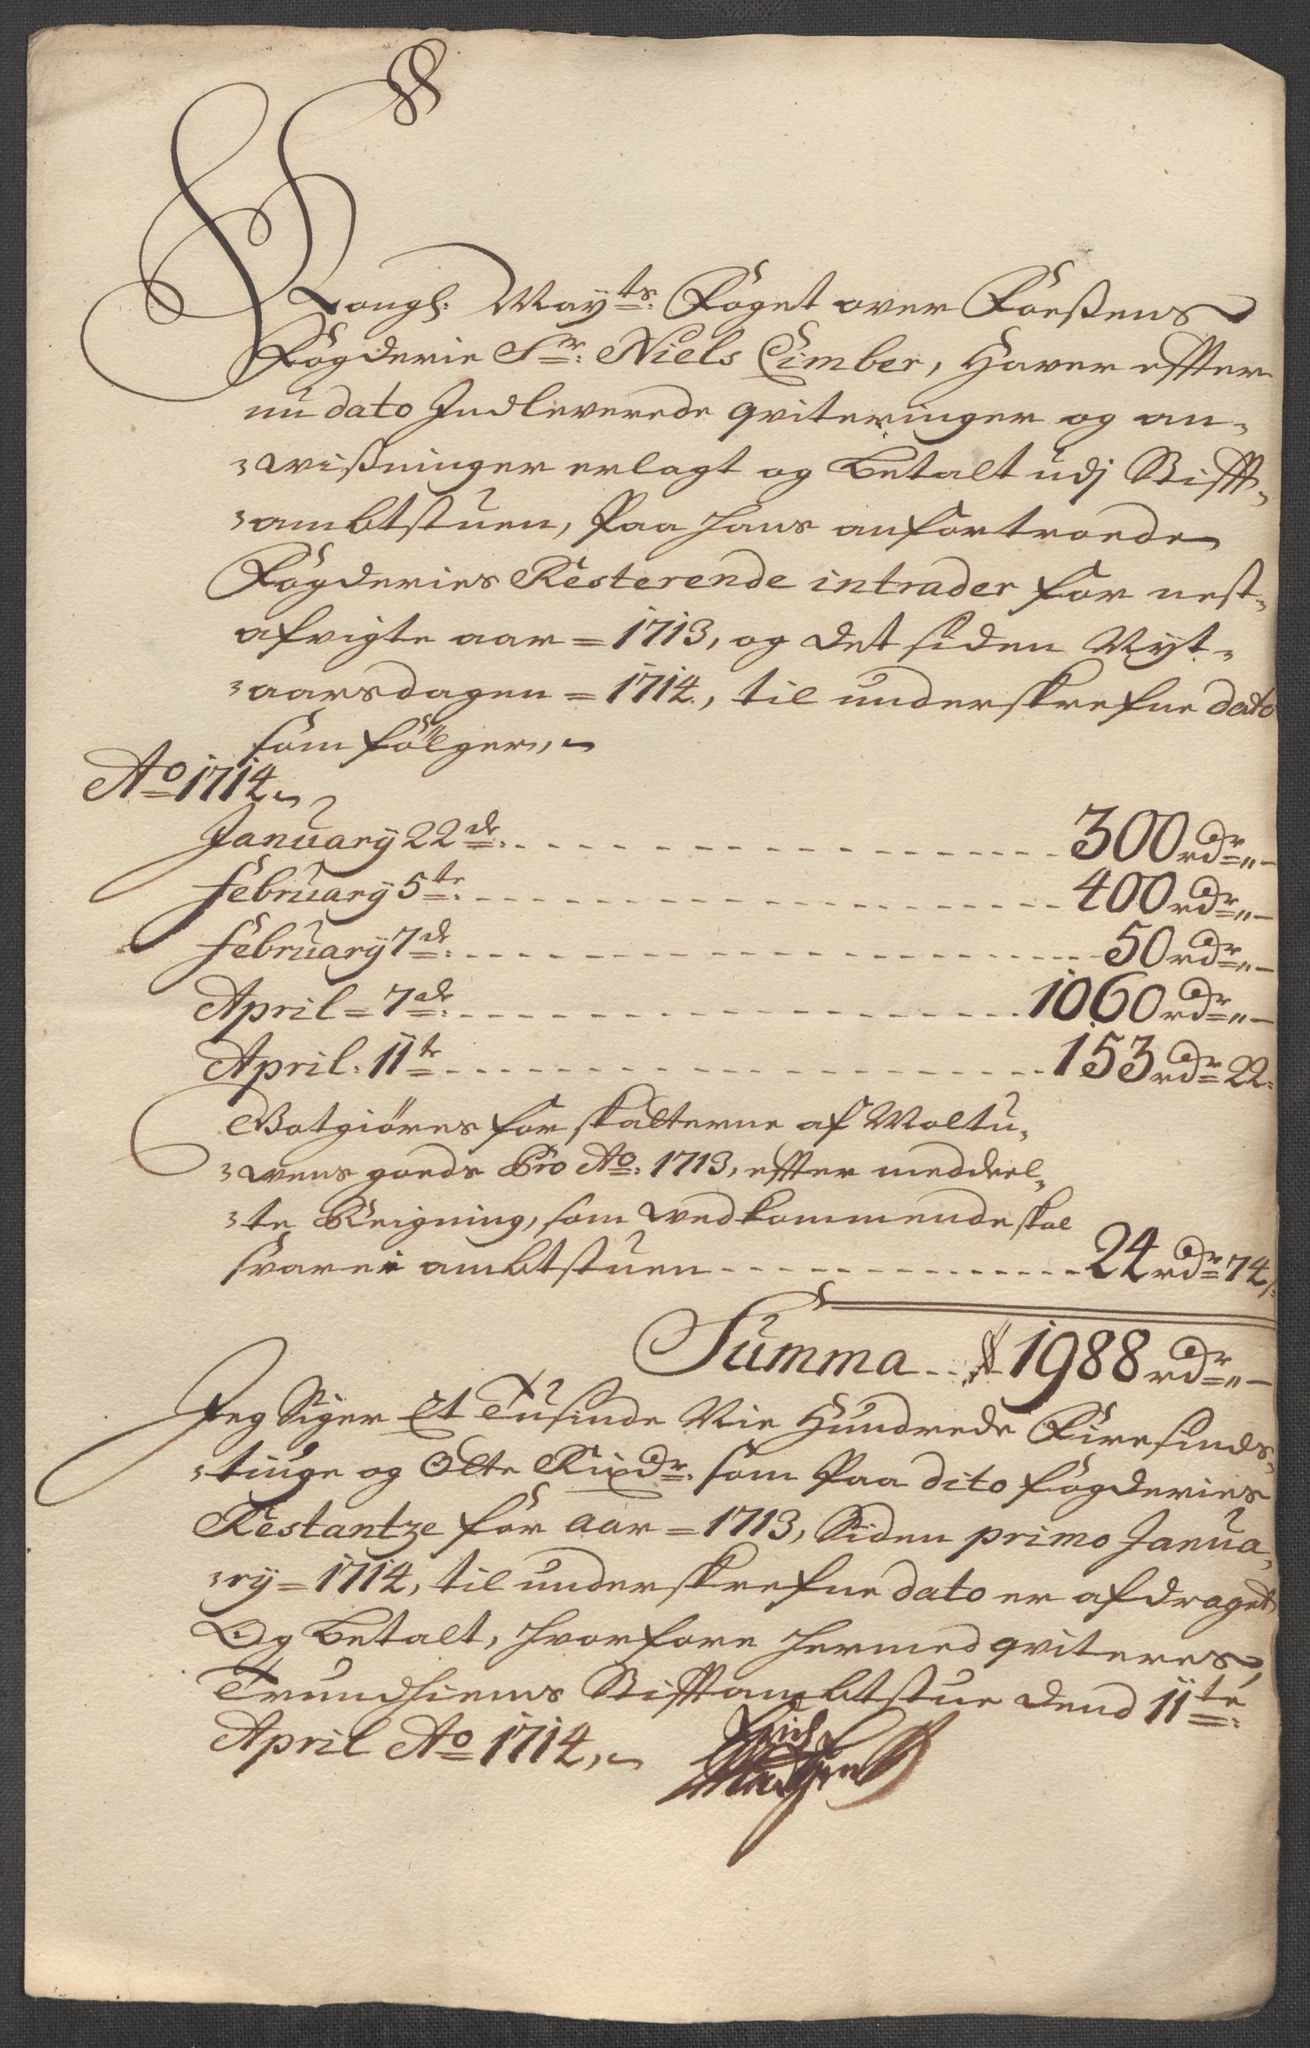 Kongl: Mayts: Foget over Foeßens
Fogderie Sr: Niels Cimber, Haver effter
nu dato Indleverede qviteringer og an-
-wißninger erlagt og betalt udj Stifft-
-ambtstuen, Paa hans anfortroede
Fogderies Resterende intrader for nest-
afvigte aar = 1713, og det siden Nyt-
-aarsdagen = 1714, til underskrefne dato
som følger,
Ao 1714
January 22de: 300 rdr „ -
February 5te: 400 rdr „ -
February 7de: 50 rdr „ -
April = 7de: 1060 rdr „ -
April. 11te 153 rdr 22
Gotgiøres for skatterne af
-wens goeds Pro Ao: 1713, effter meddeel-
-te Reigning, som wedkommende skal
svare i ambtstuen 24 rdr 74
Summa 1988 rdr „ -
Jeg Siger Et Tusinde Nie Hundrede Firesinds-
-tiuge og Otte Rixdr. som Paa dito fogderies
Restantze for aar = 1713, Siden primo Janua-
-ry = 1714, til underskrefne dato er afdraget
Og betalt, hvorfore hermed qviteres,
Trundhiems Stifftambtstue dend 11te
April Ao 1714,